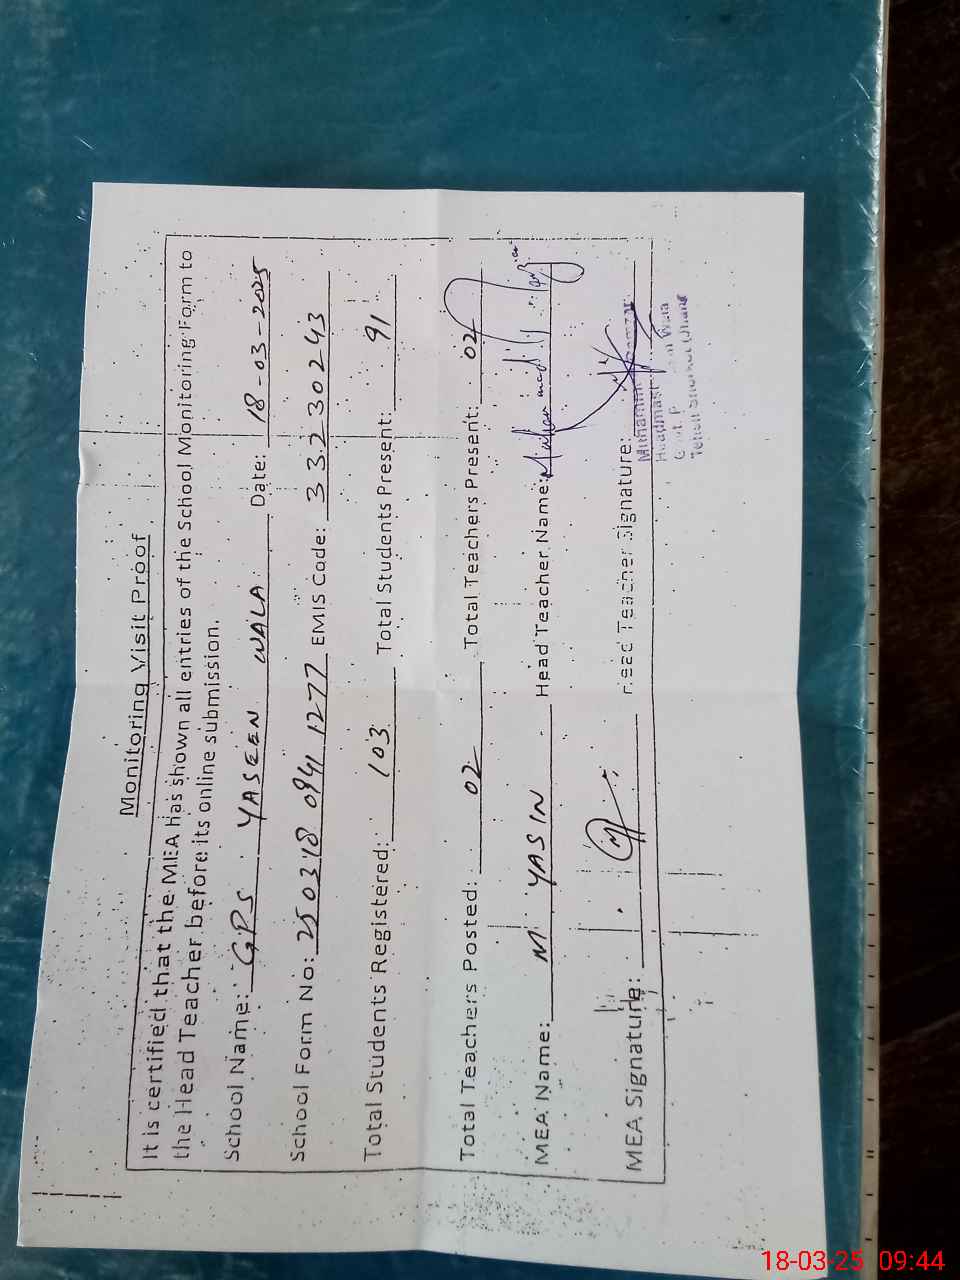 Monitoring Visit Proof
It is certified that the MEA has shown all entries of the School Monitoring Form to
the Head Teacher before its online submission.
School Name: GPS YASEEN WALA Date: 18-03-2025
School Form No: 250318 0941 1277 EMIS Code: 33230243
Total Students Registered: 103 Total Students Present: 91
Total Teachers Posted: 02 Total Teachers Present: 02
MEA Name: M YASIN Head Teacher Name:
MEA Signature: Head Teacher Signature:
18-03-25 09:44